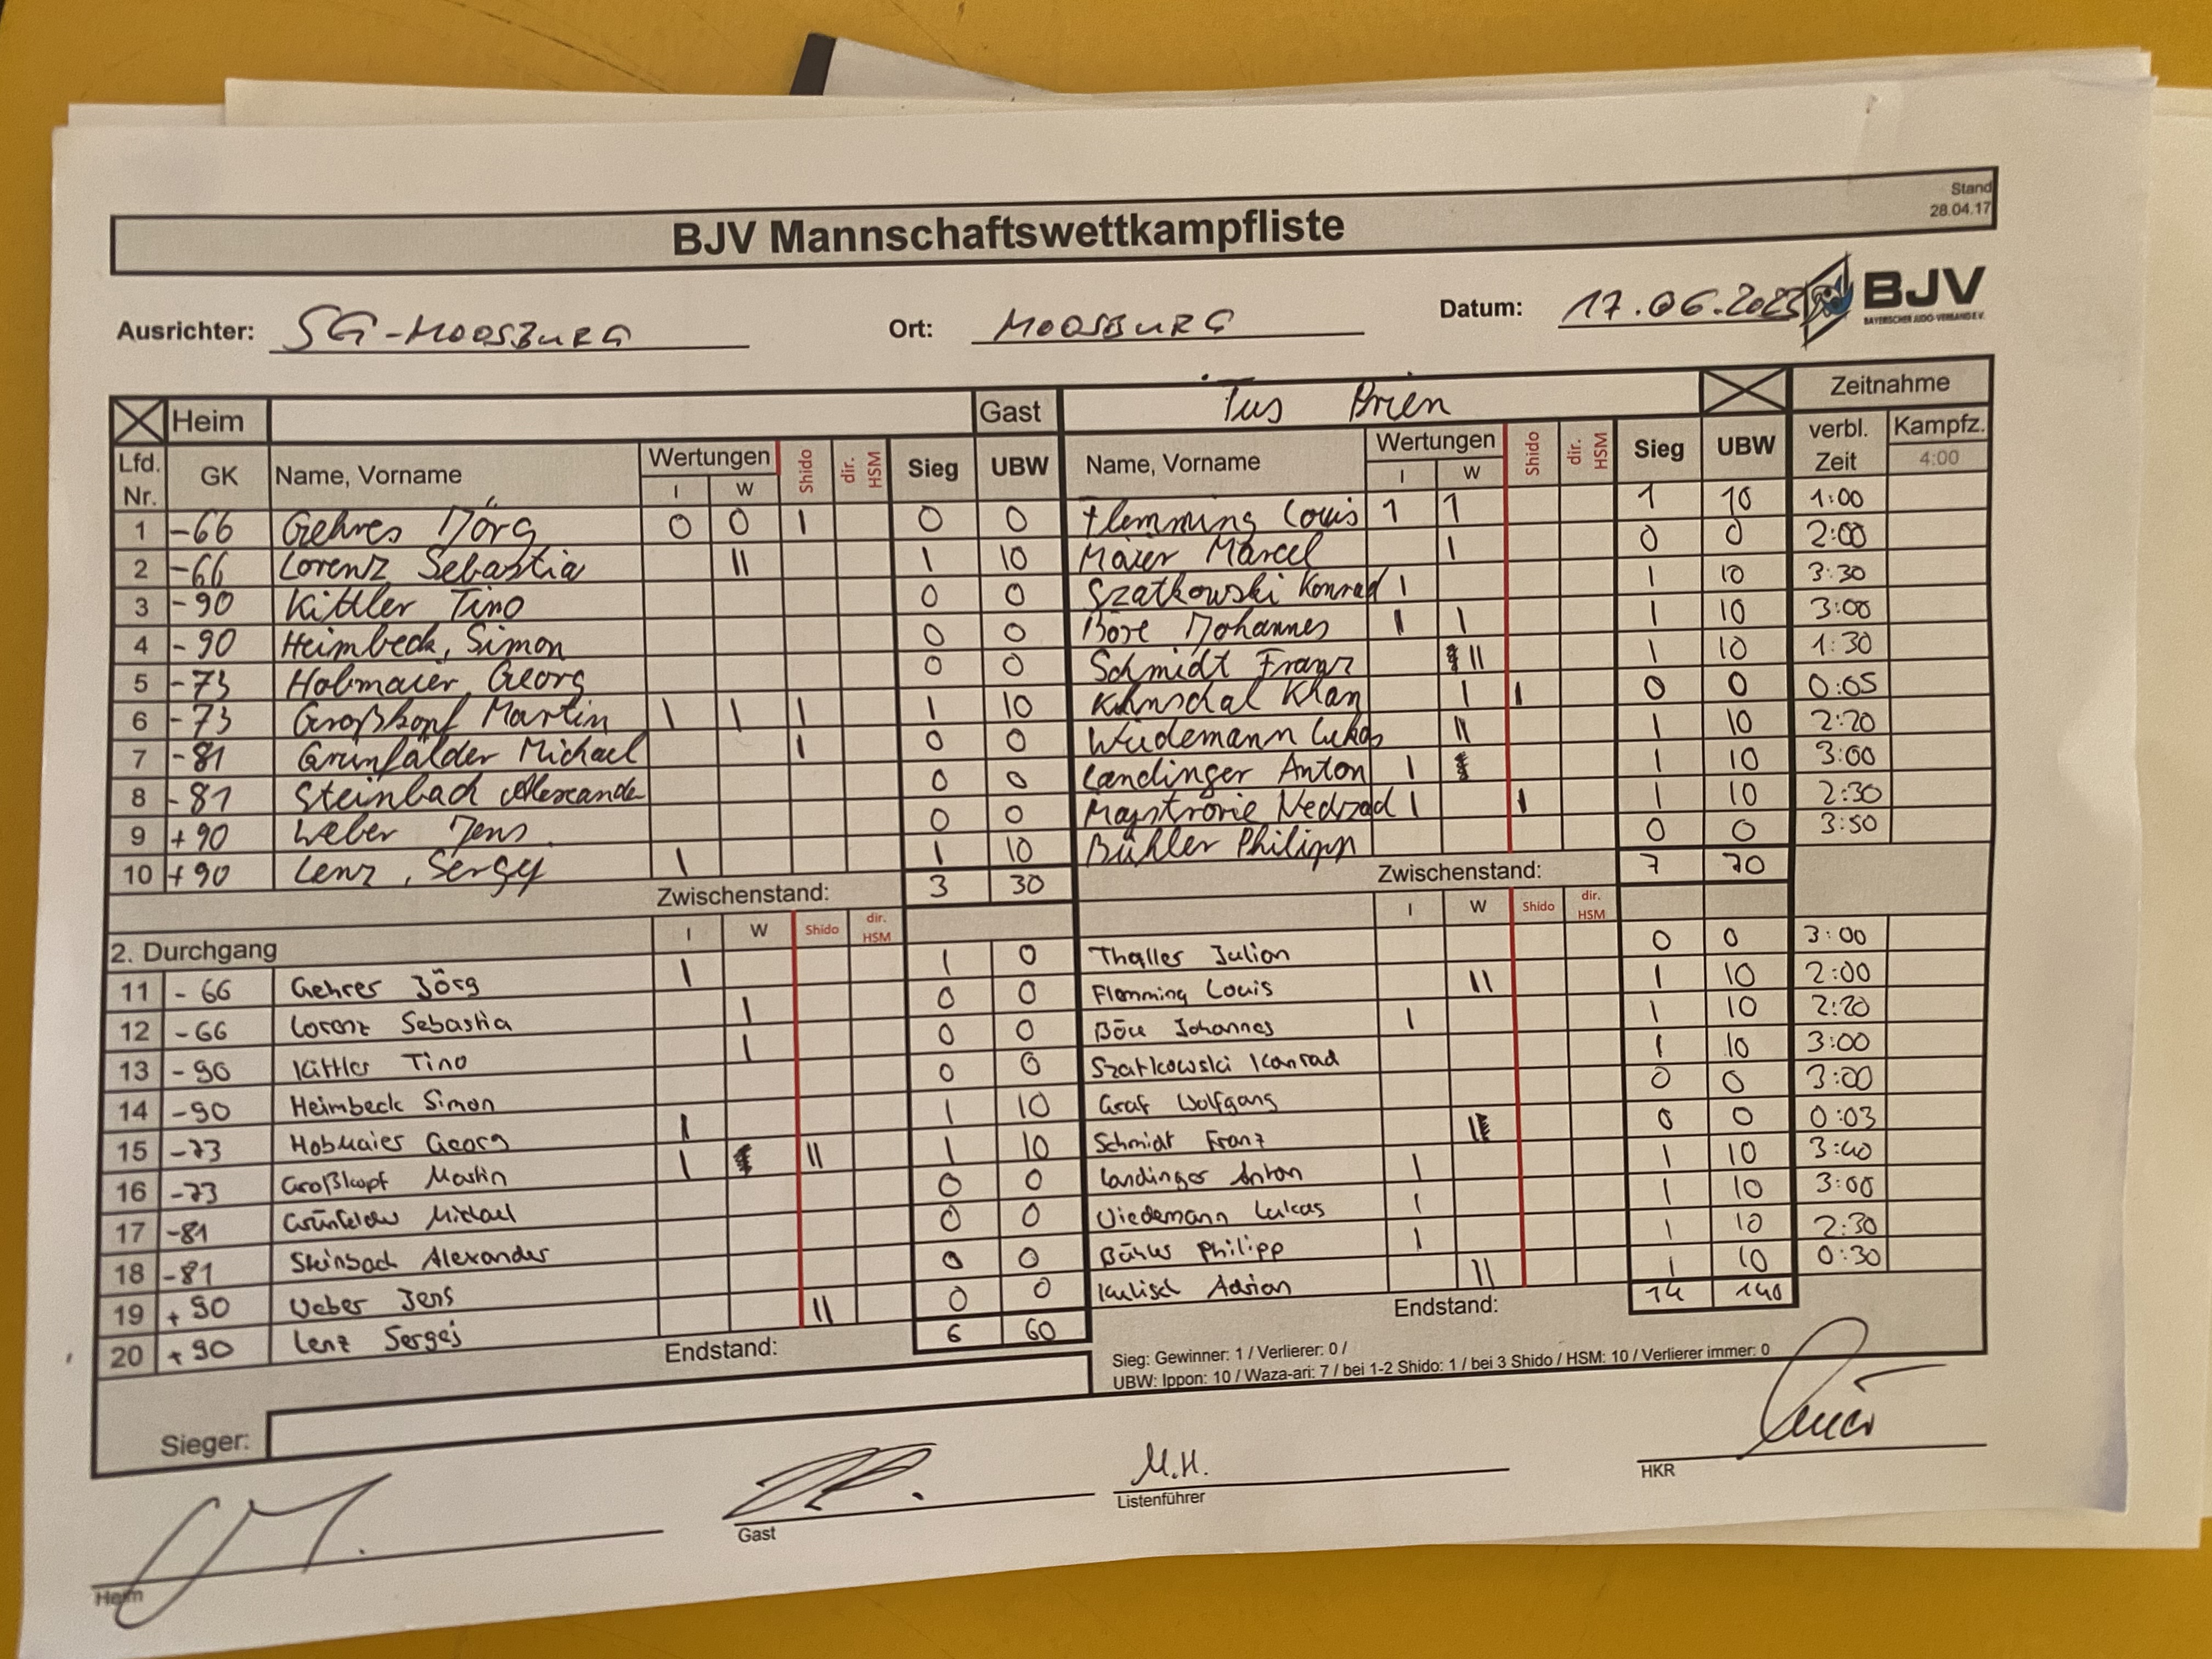 Stand
28.04.17
BJV Mannschaftswettkampfliste
BJV
BAYERISCHER JUDO-VERBAND E.V.
Ausrichter: SG-MOOSBURG Ort: MOOSBURG Datum: 17.06.2023
Heim Gast Tus Prien Zeitnahme
Lfd. Nr. GK Name, Vorname Wertungen I W Shido dir. HSM Sieg UBW Name, Vorname Wertungen I W Shido dir. HSM Sieg UBW verbl. Zeit Kampfz. 4:00
1 -66 Gehres Jörg 0 0 I 0 0 Flemming Louis 1 1 1 10 1:00
2 -66 Lorenz Sebastia II 1 10 Maier Marcel I 0 0 2:00
3 -90 Kittler Tino 0 0 Szatkowski Konrad I 1 10 3:30
4 -90 Heimbeck, Simon 0 0 Böre Johannes I I 1 10 3:00
5 -73 Hobmaier Georg 0 0 Schmidt Franz II 1 10 1:30
6 -73 Großkopf Martin I I I 1 10 Khan I I 0 0 0:05
7 -81 Grünfälder Michael I 0 0 Wiedemann Lukas II 1 10 2:20
8 -81 Steinbach Alexander 0 0 Landinger Anton I 1 10 3:00
9 +90 Weber Jens 0 0 Nedzad I I 1 10 2:30
10 +90 Lenz, Sergej I 1 10 Bühler Philipp 0 0 3:50
Zwischenstand: 3 30 Zwischenstand: 7 70
2. Durchgang I W Shido dir. HSM I W Shido dir. HSM
11 -66 Gehres Jörg I 1 0 Thaller Julian 0 0 3:00
12 -66 Lorenz Sebastia I 0 0 Flemming Louis II 1 10 2:00
13 -90 Kittler Tino I 0 0 Böre Johannes I 1 10 2:20
14 -90 Heimbeck Simon 0 0 Szatkowski Konrad 1 10 3:00
15 -73 Hobmaier Georg I 1 10 Graf Wolfgang 0 0 3:00
16 -73 Großkopf Martin I II 1 10 Schmidt Franz 0 0 0:03
17 -81 Grünfelder Michael 0 0 Landinger Anton I 1 10 3:40
18 -81 Steinbach Alexander 0 0 Wiedemann Lukas I 1 10 3:00
19 +90 Weber Jens 0 0 Bühler Philipp I 1 10 2:30
20 +90 Lenz Sergej II 0 0 Kulisch Adrian II 1 10 0:30
Endstand: 6 60 Endstand: 14 140
Sieg: Gewinner: 1 / Verlierer: 0 /
UBW: Ippon: 10 / Waza-ari: 7 / bei 1-2 Shido: 1 / bei 3 Shido / HSM: 10 / Verlierer immer: 0
Sieger:
M.H.
Heim Gast Listenführer HKR